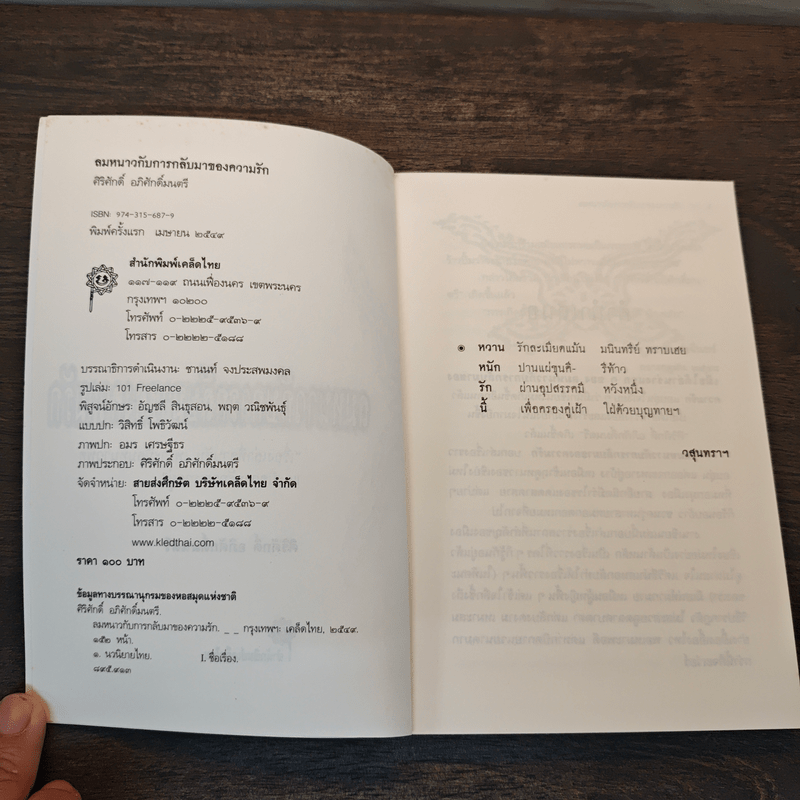 ลมหนาวกับการกลับมาของความรัก
ศิริศักดิ์ อภิศักดิ์มนตรี
ISBN: 974-315-687-9
พิมพ์ครั้งแรก เมษายน ๒๕๔๙
สำนักพิมพ์เคล็ดไทย
๑๑๗-๑๑๙ ถนนเฟื่องนคร เขตพระนคร
กรุงเทพฯ ๑๐๒๐๐
โทรศัพท์ ๐-๒๒๒๕-๙๕๓๖-๙
โทรสาร ๐-๒๒๒๒-๕๑๘๘
บรรณาธิการดำเนินงาน: ชานนท์ จงประสพมงคล
รูปเล่ม: 101 Freelance
พิสูจน์อักษร: อัญชลี สินธุสอน, พฤต วณิชพันธุ์
แบบปก: วิสิทธิ์ โพธิวัฒน์
ภาพปก: อมร เศรษฐีธร
ภาพประกอบ: ศิริศักดิ์ อภิศักดิ์มนตรี
จัดจำหน่าย: สายส่งศึกษิต บริษัทเคล็ดไทย จำกัด
โทรศัพท์ ๐-๒๒๒๕-๙๕๓๖-๙
โทรสาร ๐-๒๒๒๒-๕๑๘๘
www.kledthai.com
ราคา ๑๐๐ บาท
ข้อมูลทางบรรณานุกรมของหอสมุดแห่งชาติ
ศิริศักดิ์ อภิศักดิ์มนตรี.
ลมหนาวกับการกลับมาของความรัก. _ _ กรุงเทพฯ: เคล็ดไทย, ๒๕๔๙.
๑๕๒ หน้า.
๑. นวนิยายไทย. I. ชื่อเรื่อง.
๘๙๕.๙๑๓
หวาน รักละเมียดแม้น มนินทรีย์ ทราบเฮย
หนัก ปานแผ่ขุนคี- รีท้าว
รัก ผ่านอุปสรรคมี หวังหนึ่ง
นี้ เพื่อครองคู่เฝ้า ใฝ่ด้วยบุญทายฯ
วสุนทราฯ